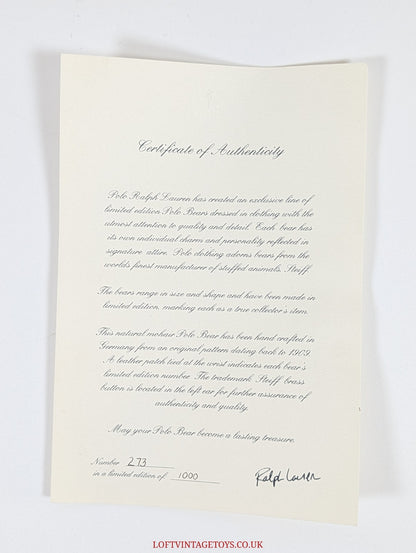 Certificate of Authenticity
Polo Ralph Lauren has created an exclusive line of
limited edition Polo Bears dressed in clothing with the
utmost attention to quality and detail. Each bear has
its own individual charm and personality reflected in
signature attire. Polo clothing adorns bears from the
worlds finest manufacturer of stuffed animals, Steiff.
The bears range in size and shape and have been made in
limited edition, marking each as a true collector's item.
This natural mohair Polo Bear has been hand crafted in
Germany from an original pattern dating back to 1909.
A leather patch tied at the wrist indicates each bear's
limited edition number. The trademark Steiff brass
button is located in the left ear for further assurance of
authenticity and quality.
May your Polo Bear become a lasting treasure.
Number 273
in a limited edition of 1000
Ralph Lauren
LOFTVINTAGETOYS.CO.UK